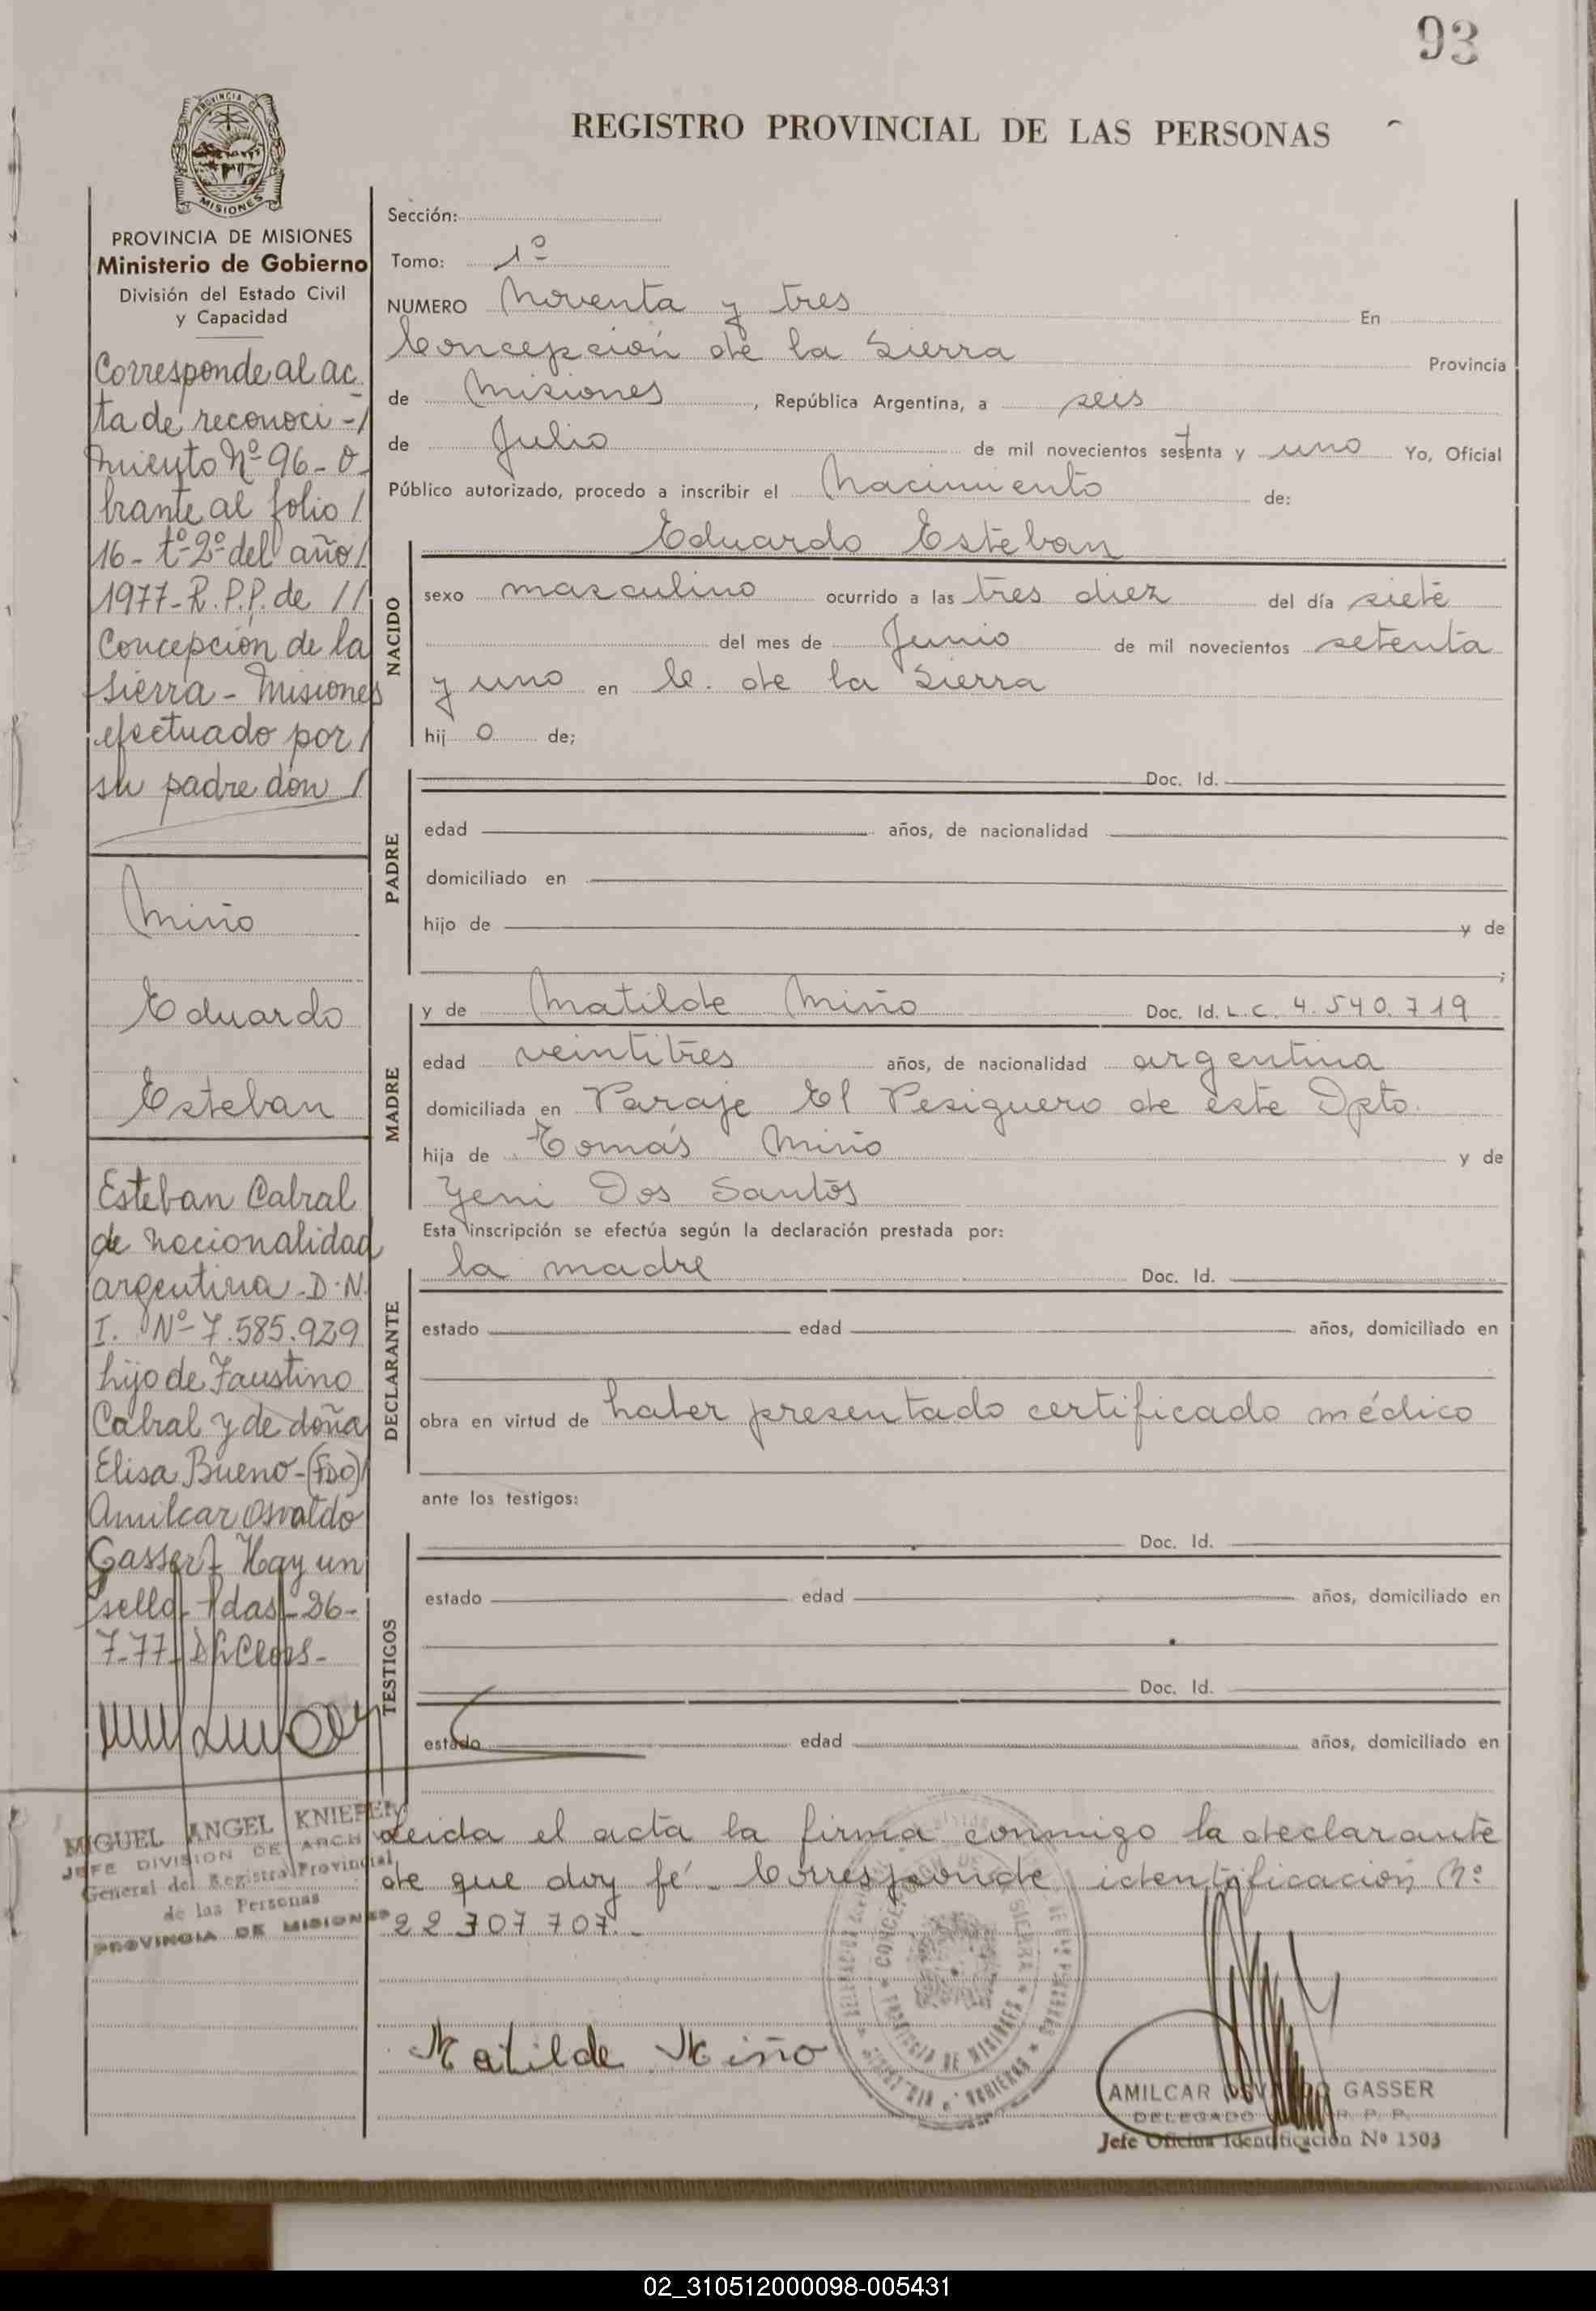 93
REGISTRO PROVINCIAL DE LAS PERSONAS
PROVINCIA DE MISIONES
PROVINCIA DE MISIONES
Ministerio de Gobierno
División del Estado Civil
y Capacidad
Corresponde al ac
ta de reconoci-/
miento Nº 96-o-
brante al folio /
16- tº 2º del año/
1977-R.P.P. de //
Concepción de la
Sierra - Misiones
efectuado por /
su padre don /
Miño
Eduardo
Esteban
Esteban Cabral
de nacionalidad
argentina D.N.
I. Nº 7.585.929
hijo de Faustino
Cabral y de doña
Elisa Bueno-(FDO)
Amilcar Osvaldo
Gasser Hay un
sello - Pdas - 26-
7-77
MIGUEL ANGEL KNIEPER
JEFE DIVISION DE ARCHIVO
General del Registro Provincial
de las Personas
PROVINCIA DE MISIONES
Sección:
Tomo: 1º
NUMERO Noventa y tres En
Concepción de la Sierra Provincia
de Misiones, República Argentina, a seis
de Julio de mil novecientos setenta y uno Yo, Oficial
Público autorizado, procedo a inscribir el Nacimiento de:
Eduardo Esteban
NACIDO
sexo masculino ocurrido a las tres diez del día siete
del mes de Junio de mil novecientos setenta
y uno en C. de la Sierra
hij o de;
PADRE
Doc. Id.
edad años, de nacionalidad
domiciliado en
hijo de y de
;
MADRE
y de Matilde Miño Doc. Id. L.C. 4.540.719
edad veintitres años, de nacionalidad argentina
domiciliada en Paraje El Pesiguero de este Dpto.
hija de Tomás Miño y de
Yeni Dos Santos
Esta inscripción se efectúa según la declaración prestada por:
DECLARANTE
la madre Doc. Id.
estado edad años, domiciliado en
obra en virtud de haber presentado certificado médico
ante los testigos:
TESTIGOS
Doc. Id.
estado edad años, domiciliado en
Doc. Id.
estado edad años, domiciliado en
Leida el acta la firma conmigo la declarante
de que doy fé. Corresponde identificación Nº
22 707 707.-
Matilde Miño
AMILCAR OSVALDO GASSER
DELEGADO R. P. P.
Jefe Oficina Identificación Nº 1503
02_310512000098-005431